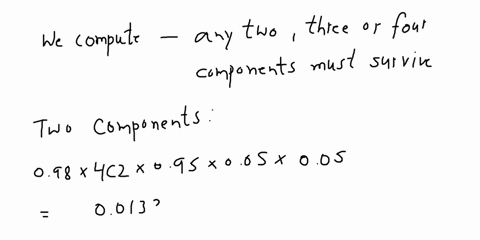 We compute — any two, three or four
components must survive
Two Components:
0.98 × 4C2 × 0.95 × 0.05 × 0.05
= 0.013